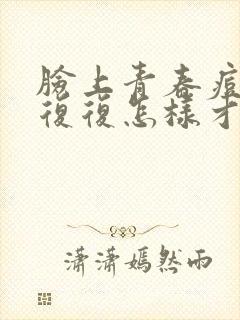 臉上青春痘
復復怎樣才
瀟瀟嫣然雨